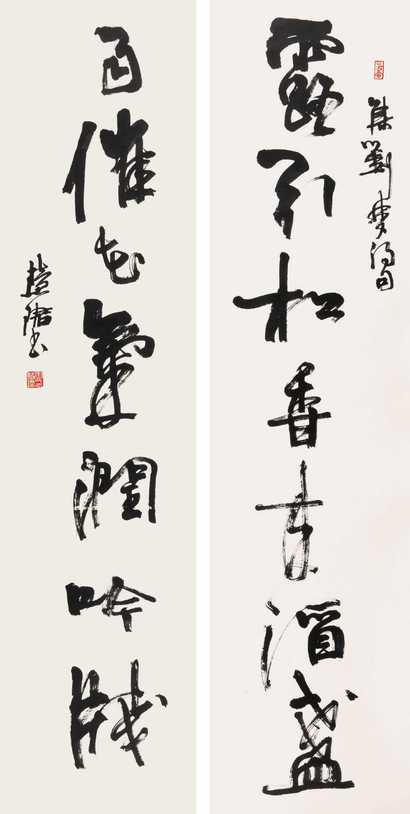 露引松香来酒盞
集劉夢得句
雨催花氣潤吟牋